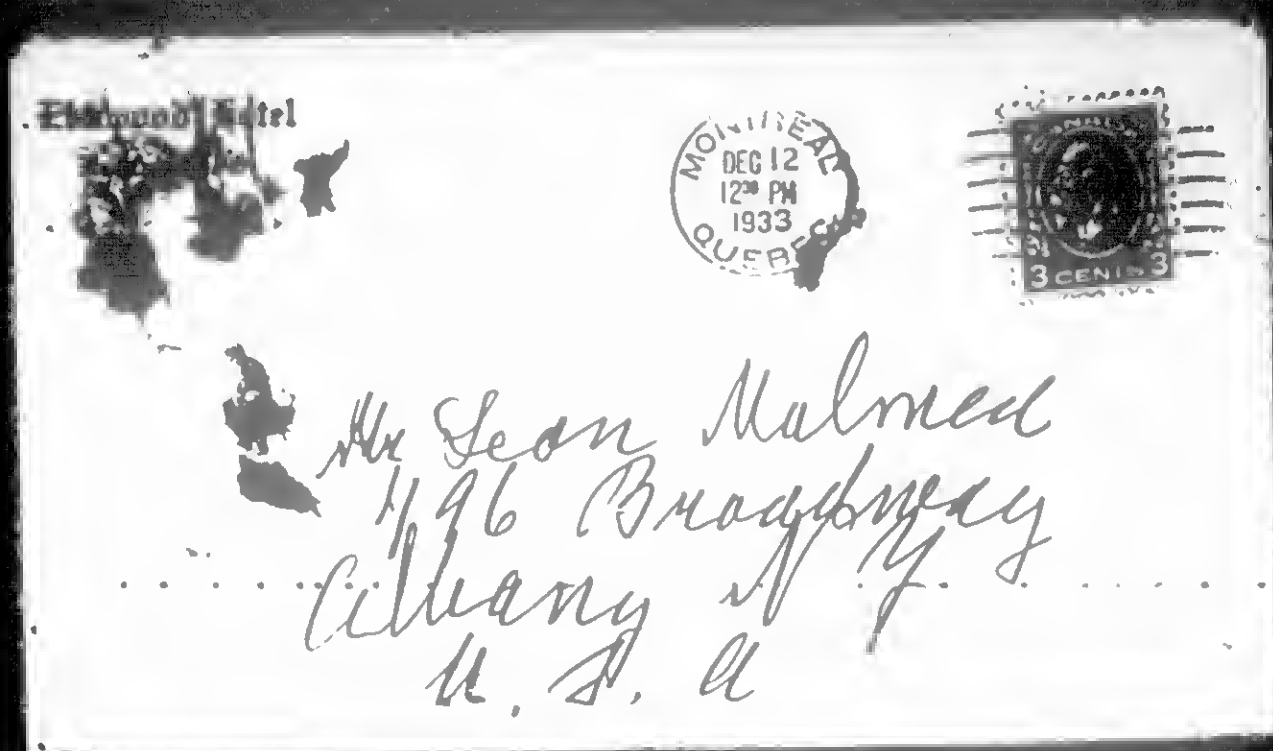 Hotel
MONTREAL
DEC 12
12³⁰ PM
1933
QUEBEC
CANADA
3 CENTS 3
Mr Leon Malmed
496 Broadway
Albany N Y
U. S. A